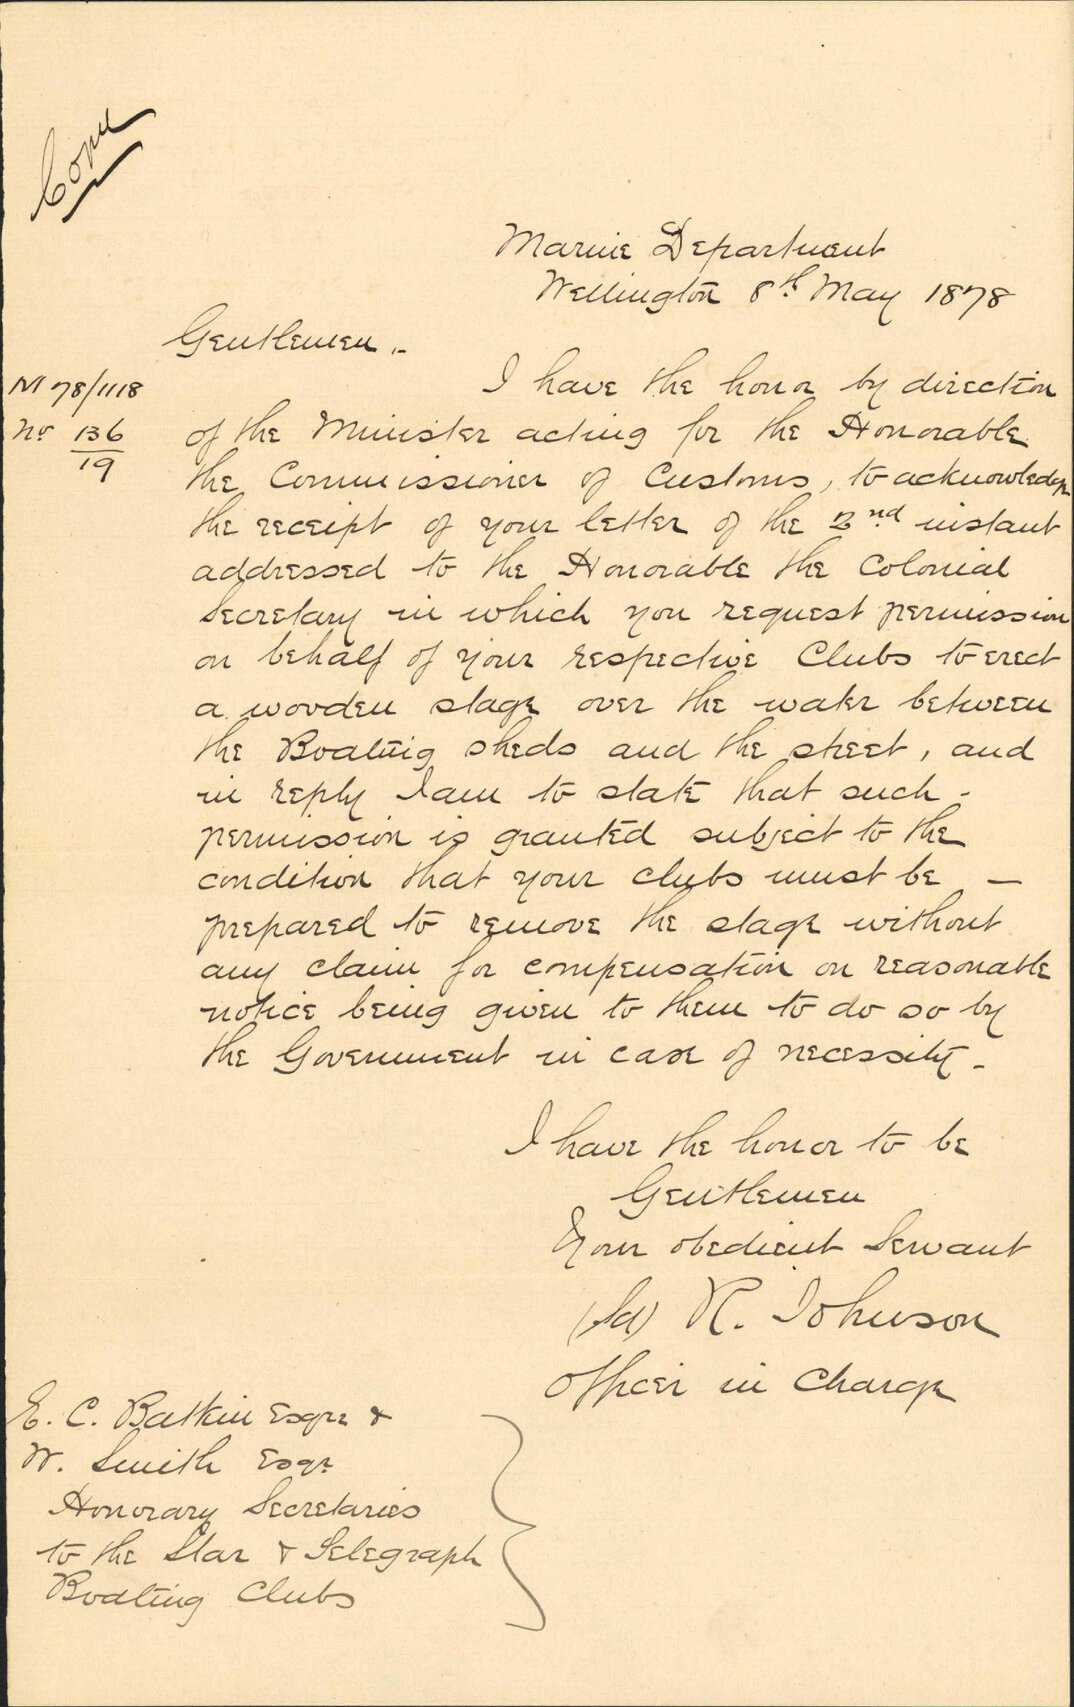 Copy
Marine Department
Wellington 8th May 1878
Gentlemen.-
M 78/1118
No 136/19
I have the honor by direction
of the Minister acting for the Honorable
the Commissioner of Customs, to acknowledge
the receipt of your letter of the 2nd instant
addressed to the Honorable the Colonial
Secretary in which you request permission
on behalf of your respective Clubs to erect
a wooden stage over the water between
the Boating sheds and the street, and
in reply I am to state that such -
permission is granted subject to the
condition that your clubs must be —
prepared to remove the stage without
any claim for compensation on reasonable
notice being given to them to do so by
the Government in case of necessity.-
I have the honor to be
Gentlemen
Your obedient Servant
(Sd) R. Johnson
Officer in Charge
E. C. Batkin Esqre &
W. Smith Esqr
Honorary Secretaries
to the Star & Telegraph
Boating Clubs